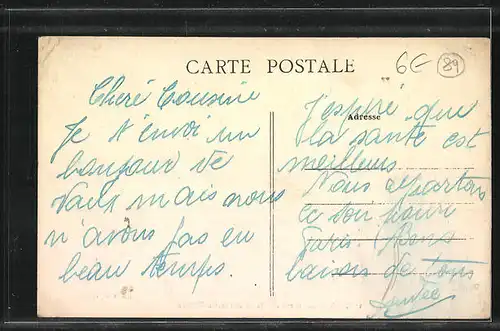 CARTE POSTALE
6€
89
Cheré Cousine
Je t'envoi un
bonjour de
Vaux mais nous
n'avons pas eu
beau temps.
Adresse
J'espere que
la santé est
meilleurs
Nous repartons
ce soir pour
Paris. Bons
baisers de tous